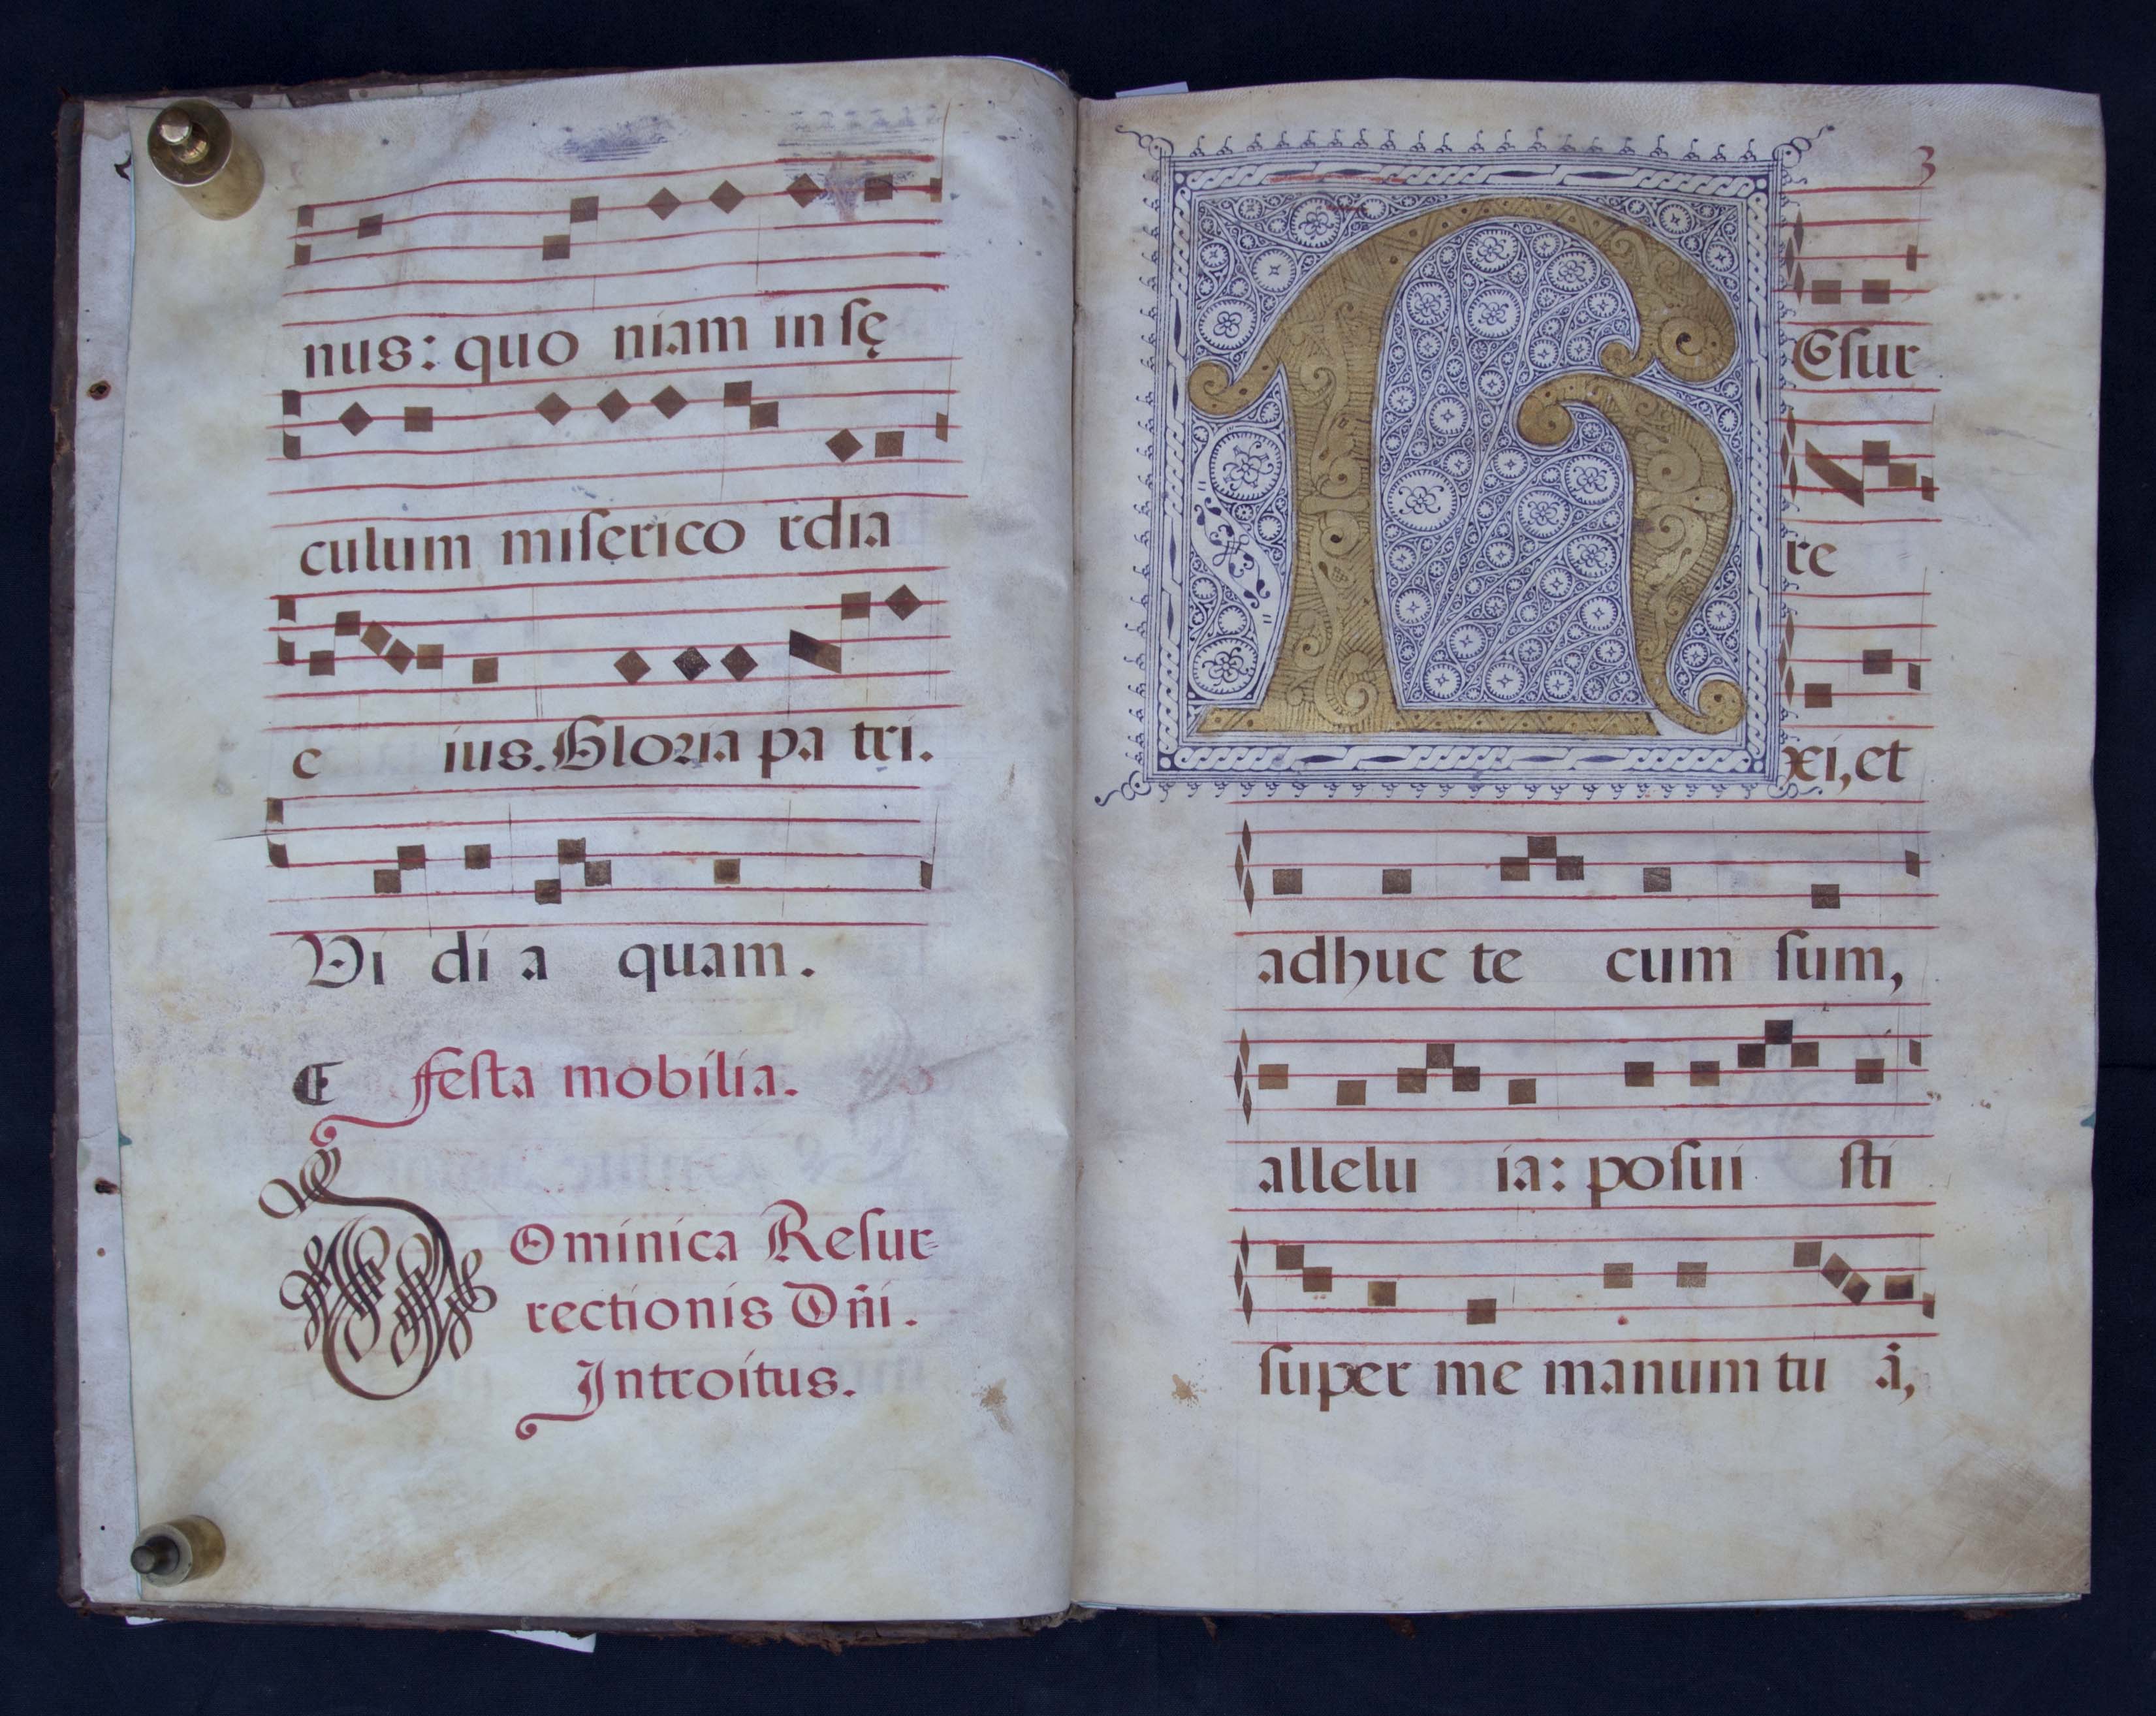 nus: quo niam in sę
culum misęrico rdia
e ius. Gloria pa tri.
Vi di a quam.
festa mobilia.
Dominica Resur-
rectionis Dñi.
Introitus.
3
REsur
re
xi, et
adhuc te cum sum,
allelu ia: posui sti
super me manum tu ā,